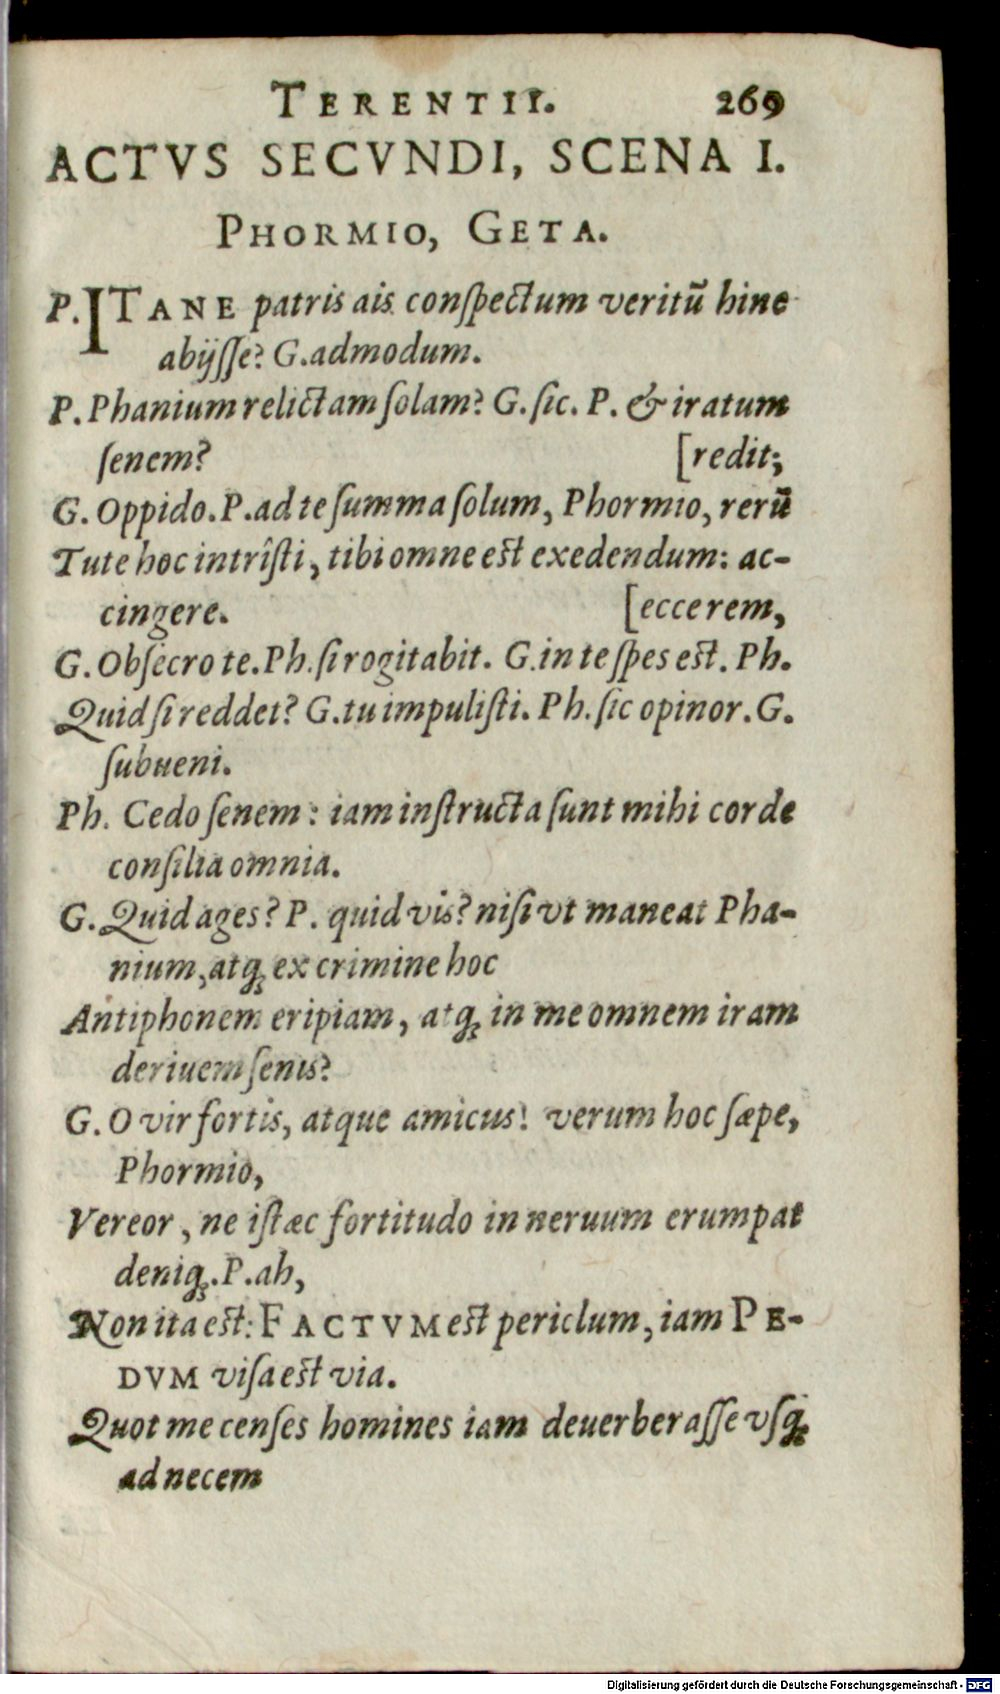 TERENTII. 269
ACTVS SECVNDI, SCENA I.
PHORMIO, GETA.
P. ITANE patris ais conſpectum veritū hinc
abijſſe? G. admodum.
P. Phanium relictam ſolam? G. ſic. P. & iratum
ſenem? [redit;
G. Oppido. P. ad te ſumma ſolum, Phormio, rerū
Tute hoc intrîſti, tibi omne eſt exedendum: ac-
cingere. [eccerem,
G. Obſecro te. Ph. ſi rogitabit. G. in te ſpes eſt. Ph.
Quid ſi reddet? G. tu impuliſti. Ph. ſic opinor. G.
ſubueni.
Ph. Cedo ſenem: iam inſtructa ſunt mihi corde
conſilia omnia.
G. Quid ages? P. quid vis? niſi vt maneat Pha-
nium, atq; ex crimine hoc
Antiphonem eripiam, atq; in me omnem iram
deriuem ſenis?
G. O vir fortis, atque amicus! verum hoc ſæpe,
Phormio,
Vereor, ne iſtæc fortitudo in neruum erumpat
deniq;. P. ah,
Non ita eſt: FACTVM eſt periclum, iam PE-
DVM viſa eſt via.
Quot me cenſes homines iam deuerberaſſe vſq;
ad necem
Digitalisierung gefördert durch die Deutsche Forschungsgemeinschaft - DFG